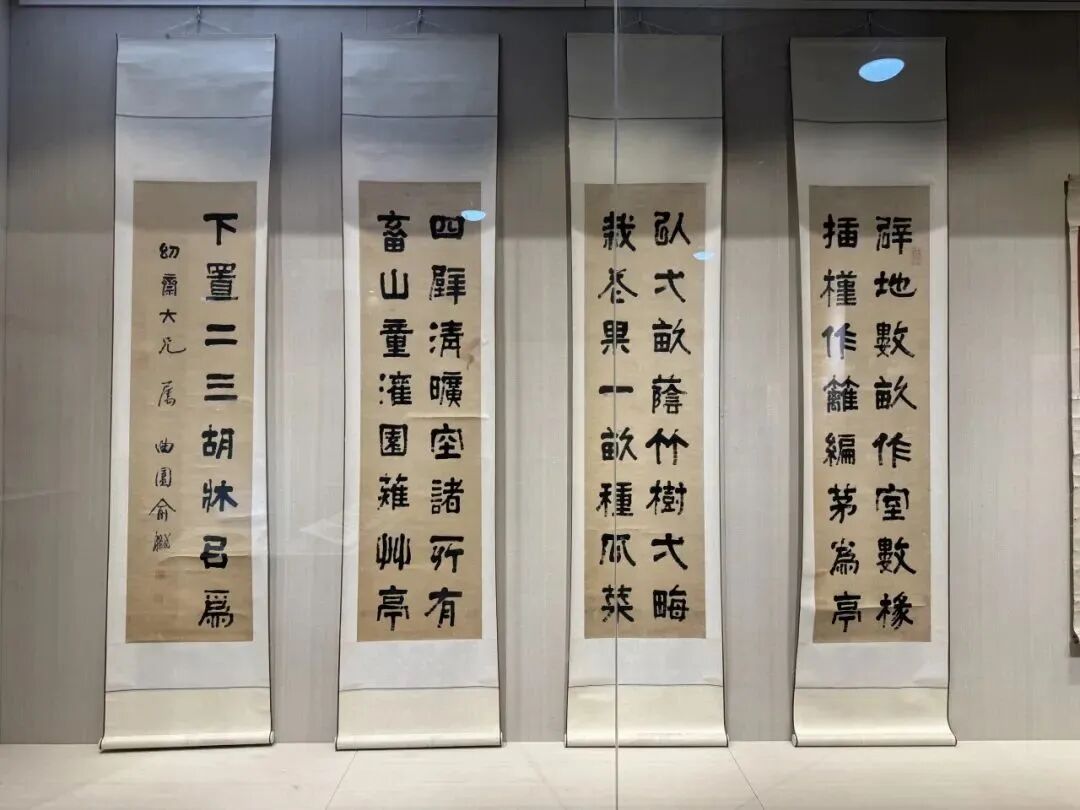 辟地數畝作室數椽
插槿作籬編茅為亭
㕥弌畝蔭竹樹弌畮
栽花果一畝種瓜菜
四壁清曠空諸所有
畜山童灌園薙艸亭
下置二三胡牀爲
幼齋大兄屬 曲園俞樾